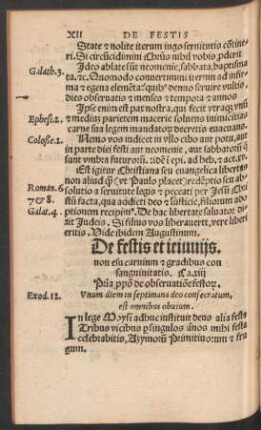 XII DE FESTIS
State et nolite iterum iugo seruitutis cōtine-
ri. Si circūcidimini Chrūs nihil vobis pderit
Ideo ablate sūt neomenie, sabbata, baptisma
Galath. 3. ta ec. Quomodo conuertimini iterum ad infir
ma et egena elementa: quib denuo seruire vultis,
dies obseruatis et menses et tempora et annos
Ipse enim est pax nostra, qui fecit vtraq vnū
Ephes. 2. et mediū parietem macerie soluens inimicitias
carne sua legem mandatoꝝ decretis euacuans.
Colosse. 2. Nemo vos iudicet in cibo aut potu, aut
in parte diei festi aut neomenie, aut sabbatoꝝ q
sunt vmbra futuroꝝ. idē epi. ad heb. et act. xv.
Est igitur Christiana seu euangelica libertas
non aliud q (vt Paulo placet) redēptio seu ab
Roman. 6 solutio a seruitute legis et peccati per Jesū Chri
7 & 8. stū facta, qua addicti deo et iusticie, filiorum ado
Galat. 4. ptionem recipim. De hac libertate saluator di
xit Judeis. Si filius vos liberauerit, vere liberi
eritis. Vide ibidem Augustinum.
De festis et ieiunijs,
non esu carnium et gradibus con
sanguinitatis. Ca. xiij
de obseruatiōe festoꝝ.
Vnum diem in septimana deo consecratum,
est omnibus obuium.
Exod. 12. In lege Moysi adhuc instituit deus alia festa
Tribus vicibus p singulos ānos mihi festa
celebrabitis, Azymoꝝ Primitiuorum et fru
gum.